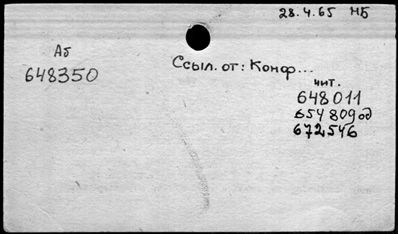 28.4.65 НБ
Аб
648350
Ссыл. от: Конф...
чит.
648011
654809од
672546